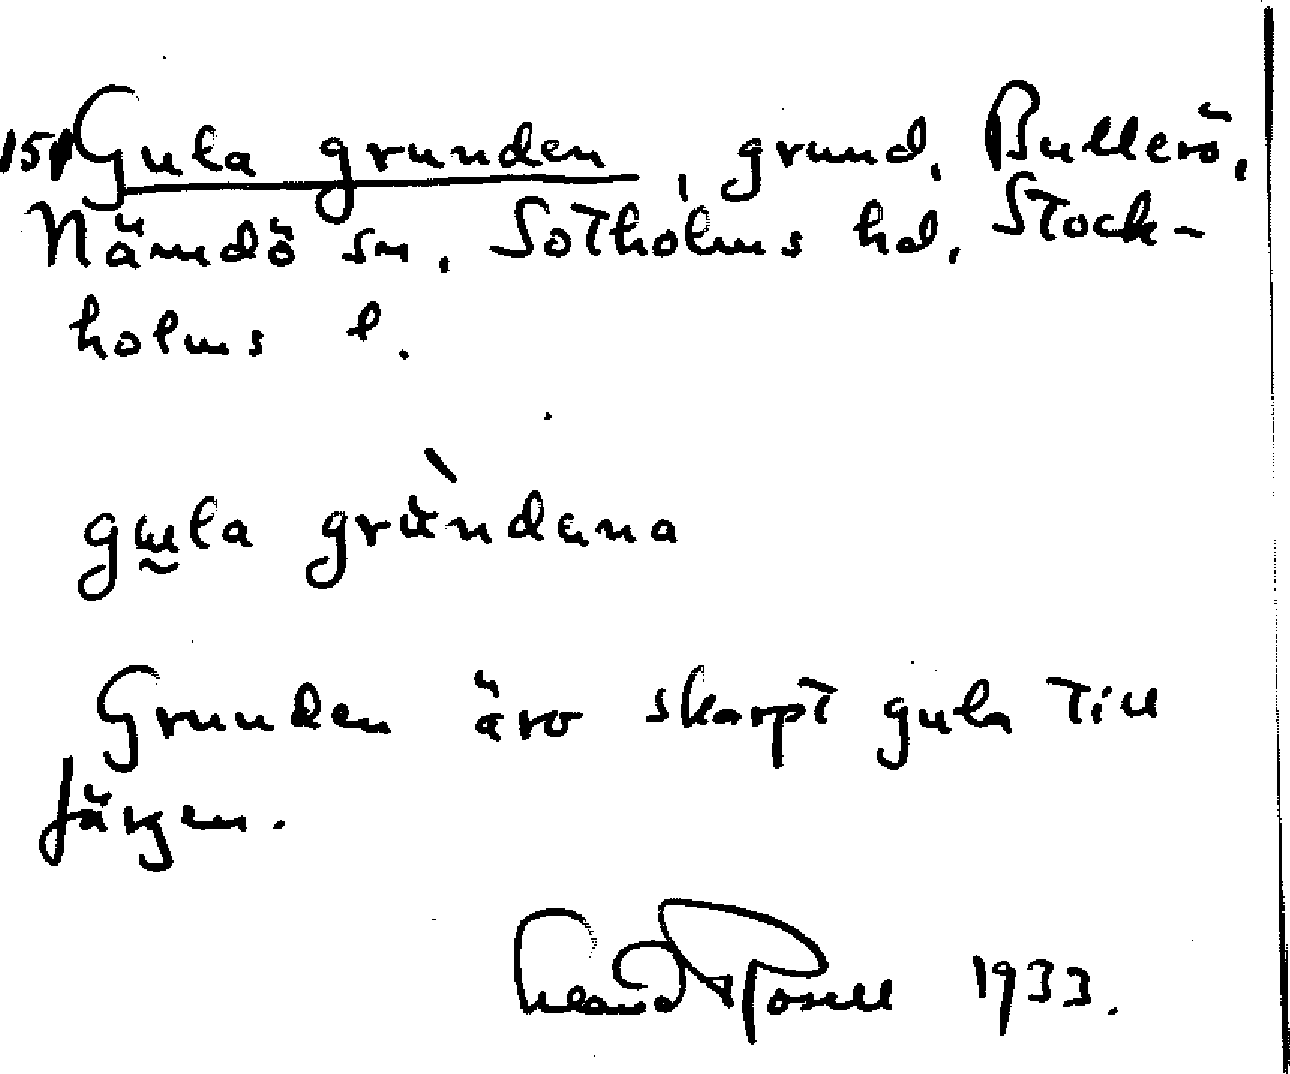 151 Gula grunden, grund, Bullerö,
Nämdö sn, Sotholms hd, Stock-
holms l.
gula grùndana
Grunden äro skarpt gula till
färgen.
Erland Rosell 1933.